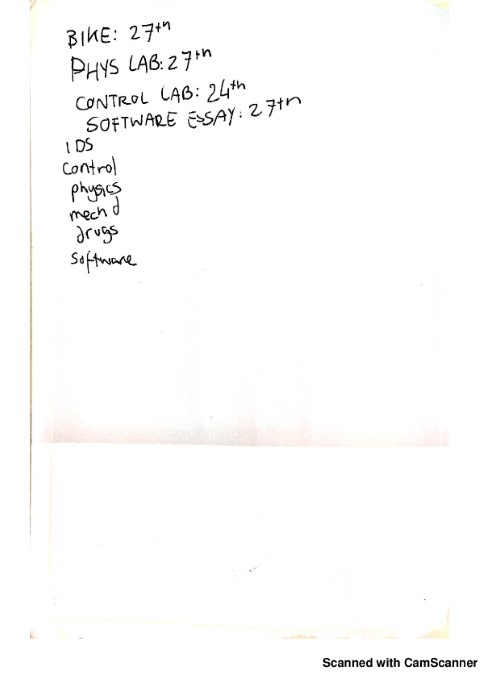 BIKE: 27th
PHYS LAB: 27th
CONTROL LAB: 24th
SOFTWARE ESSAY: 27th
IDS
Control
physics
mech d
drugs
software
Scanned with CamScanner